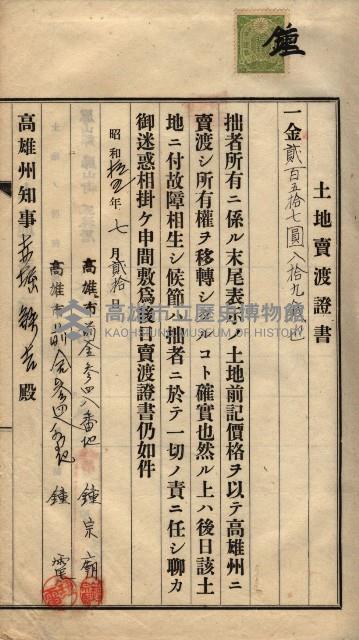 鍾
土地賣渡證書
一金貳百五拾七圓八拾九錢也
拙者所有ニ係ル末尾表示ノ土地前記價格ヲ以テ高雄州ニ
賣渡シ所有權ヲ移轉シタルコト確實也然ル上ハ後日該土
地ニ付故障相生シ候節ハ拙者ニ於テ一切ノ責ニ任シ聊カ
御迷惑相掛ケ申間敷爲後日賣渡證書仍如件
昭和拾五年七月貳拾日
高雄市前金参四八番地 鍾宗廟
高雄市前金参四八番地 鍾電
高雄州知事赤堀鐵吉殿
高雄市立歷史博物館
KAOHSIUNG MUSEUM OF HISTORY